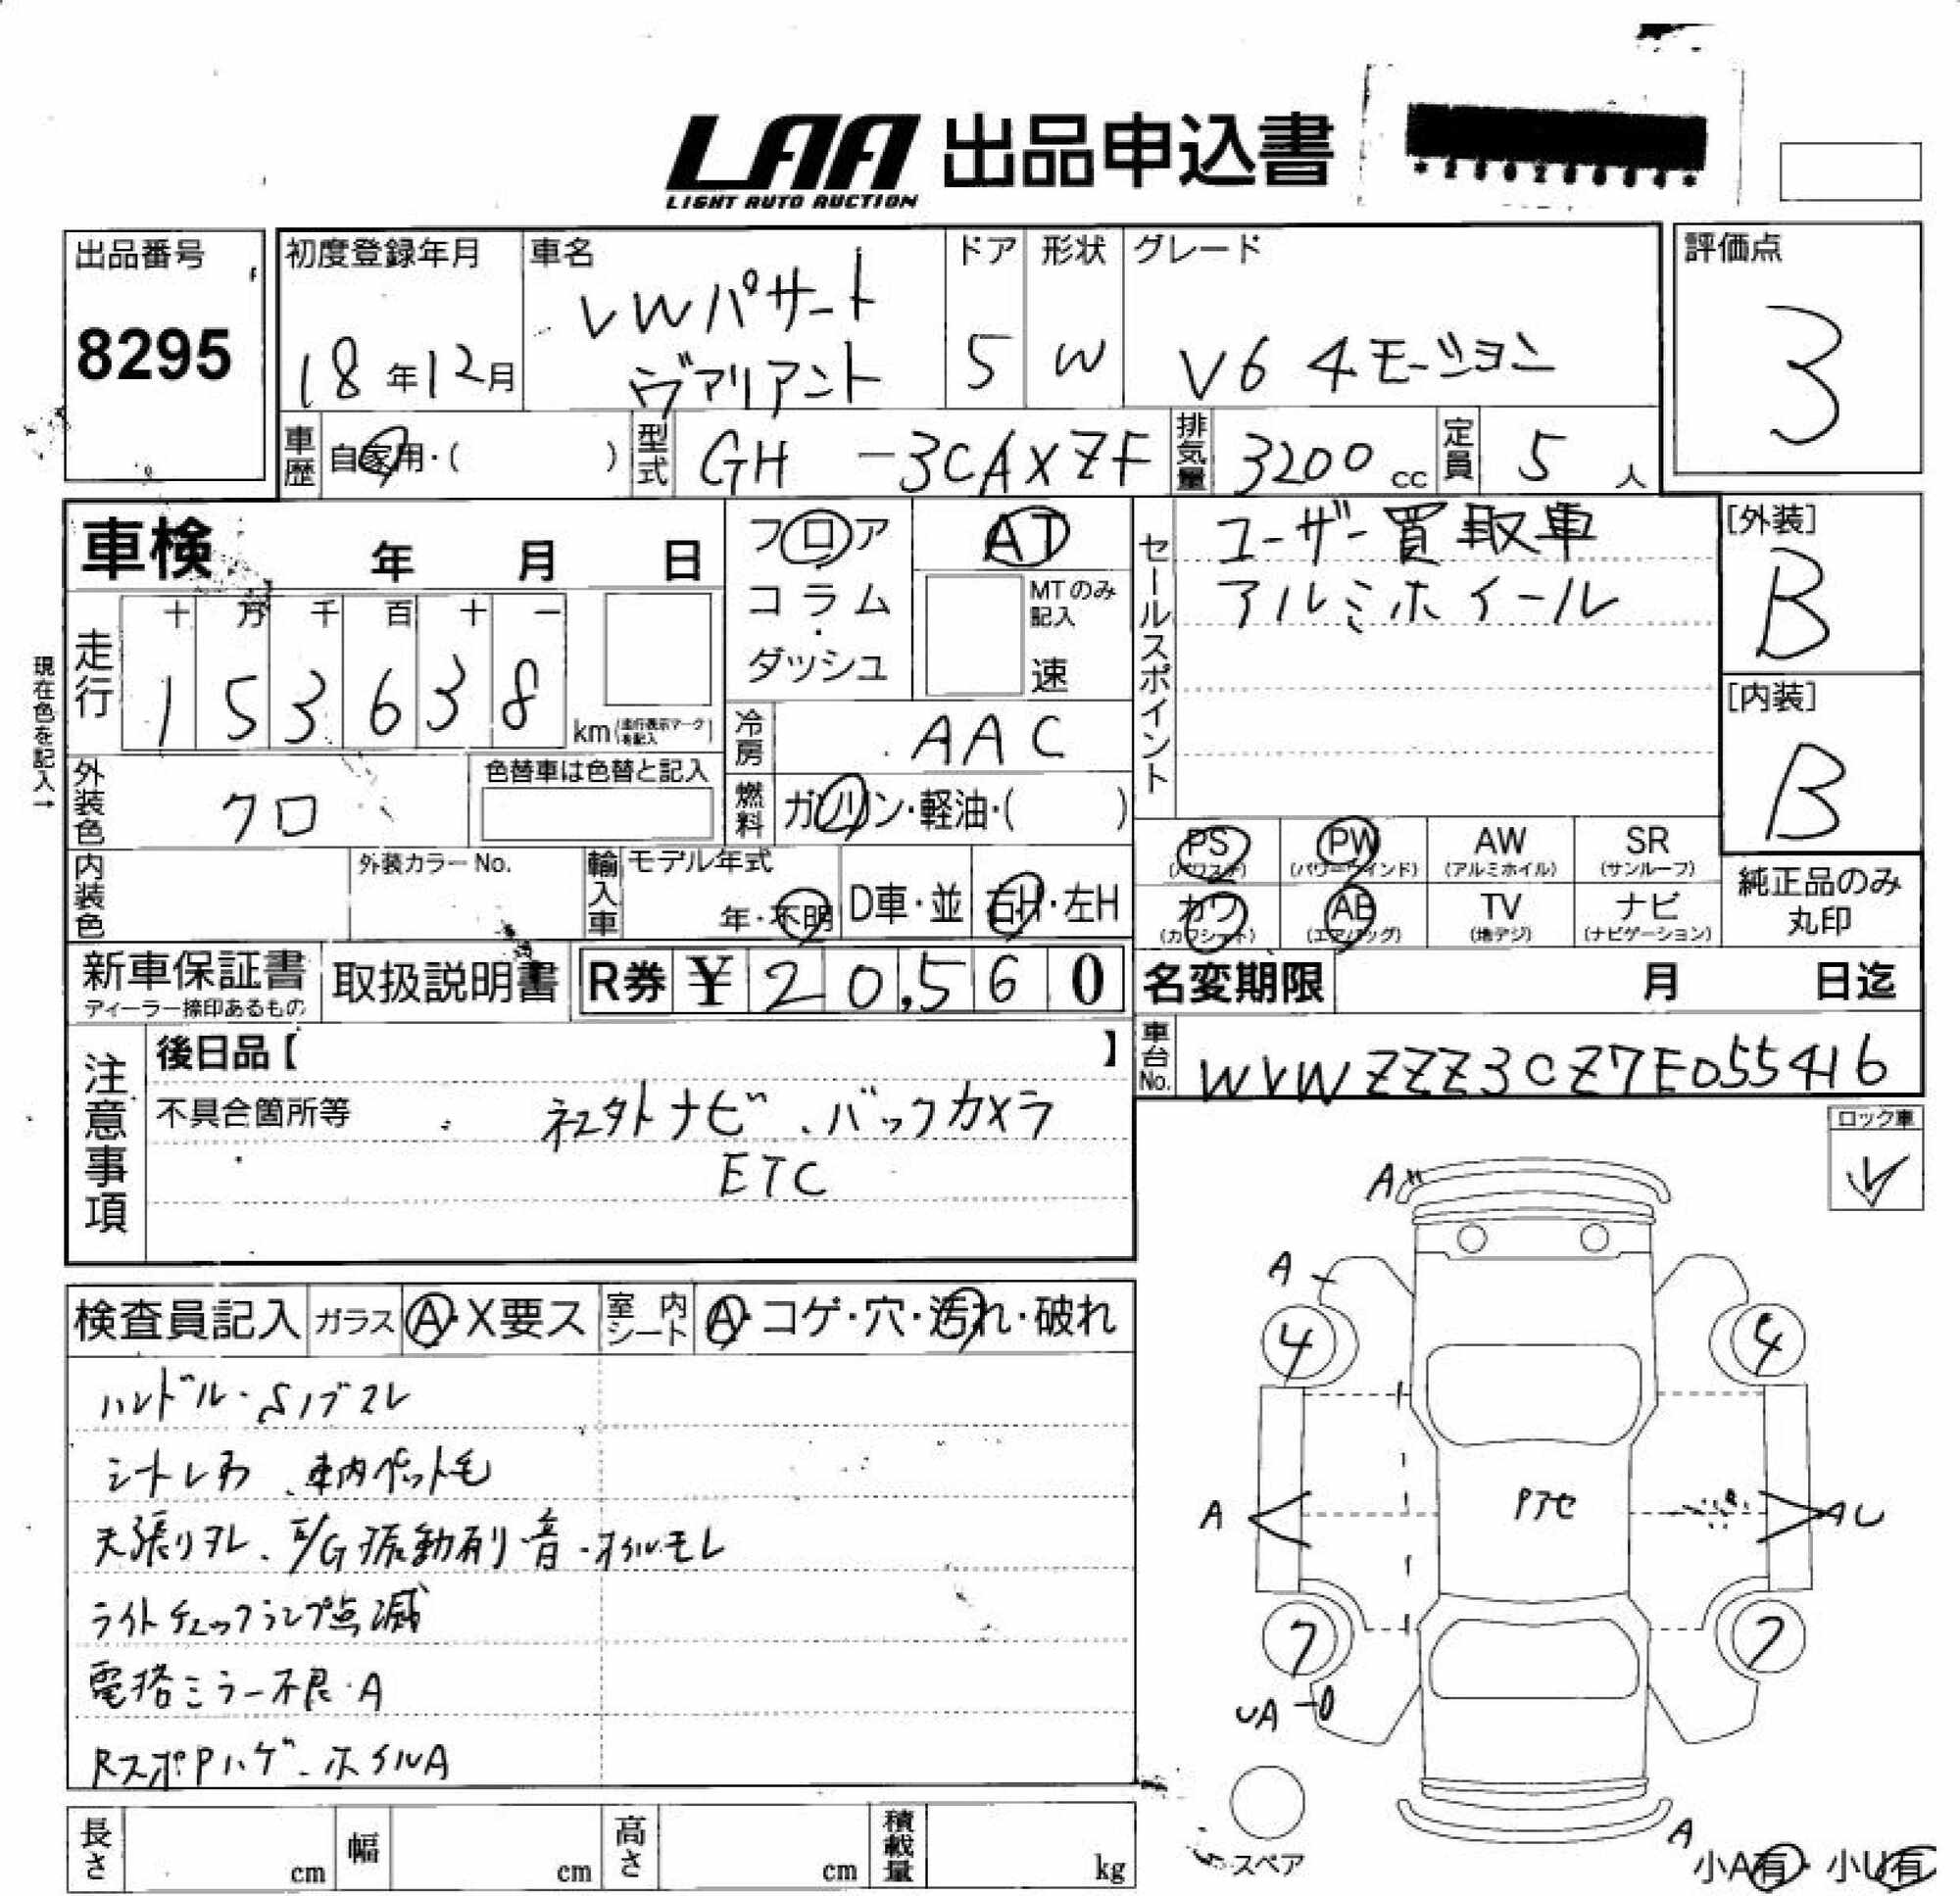 LAA 出品申込書
LIGHT AUTO AUCTION
出品番号
8295
初度登録年月
18年12月
車名
VWパサート
ヴァリアント
ドア
5
形状
W
グレード
V6 4モーション
評価点
3
車歴
自家用・( )
型式
GH -3CAXZF
排気量
3200 cc
定員
5 人
車検 年 月 日
フロア
コラム
・
ダッシュ
AT
MTのみ
記入
速
セールスポイント
ユーザー買取車
アルミホイール
[外装]
B
[内装]
B
現在色を記入→
走行
十 万 千 百 十 一
1 5 3 6 3 8
km(走行表示マークを記入)
冷房
AAC
外装色
クロ
色替車は色替と記入
燃料
ガソリン・軽油・( )
内装色
外装カラーNo.
輸入車
モデル年式
年・不明
D車・並
右H・左H
PS
(パワステ)
PW
(パワーウインド)
AW
(アルミホイル)
SR
(サンルーフ)
カワ
(カワシート)
AB
(エアバッグ)
TV
(地デジ)
ナビ
(ナビゲーション)
純正品のみ
丸印
新車保証書
ディーラー捺印あるもの
取扱説明書
R券 ¥ 20,560
名変期限 月 日迄
車台No.
WVWZZZ3CZ7E055416
注意事項
後日品【 】
不具合箇所等
社外ナビ、バックカメラ
ETC
ロック車
検査員記入
ガラス
A・X要ス
室内シート
A・コゲ・穴・汚れ・破れ
ハンドル・Sノブスレ
シートレカ、車内ペット毛
天張りタレ、E/G振動有り音・オイルモレ
ライトチェックランプ点滅
電格ミラー不良・A
RスポPハゲ・ホイルA
A
A
4
4
A
AU
7
7
UA
A
スペア
小A有・小U有
長さ cm
幅 cm
高さ cm
積載量 kg